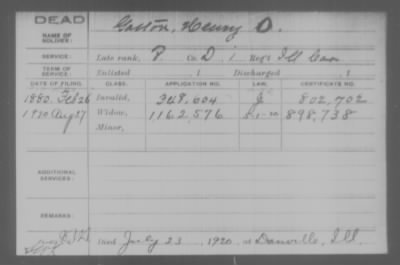 DEAD
NAME OF SOLDIER: Gaston, Henry O.
SERVICE: Late rank, P. Co. D, 1 Reg't Ill Cav
TERM OF SERVICE: Enlisted , 1 Discharged , 1
DATE OF FILING. CLASS. APPLICATION NO. LAW. CERTIFICATE NO.
1880 Feb 26 Invalid, 348,604 802,702
1920 Aug 27 Widow, 1162,576 898,738
Minor,
ADDITIONAL SERVICES:
REMARKS:
Died July 23, 1920, at Danville, Ill.